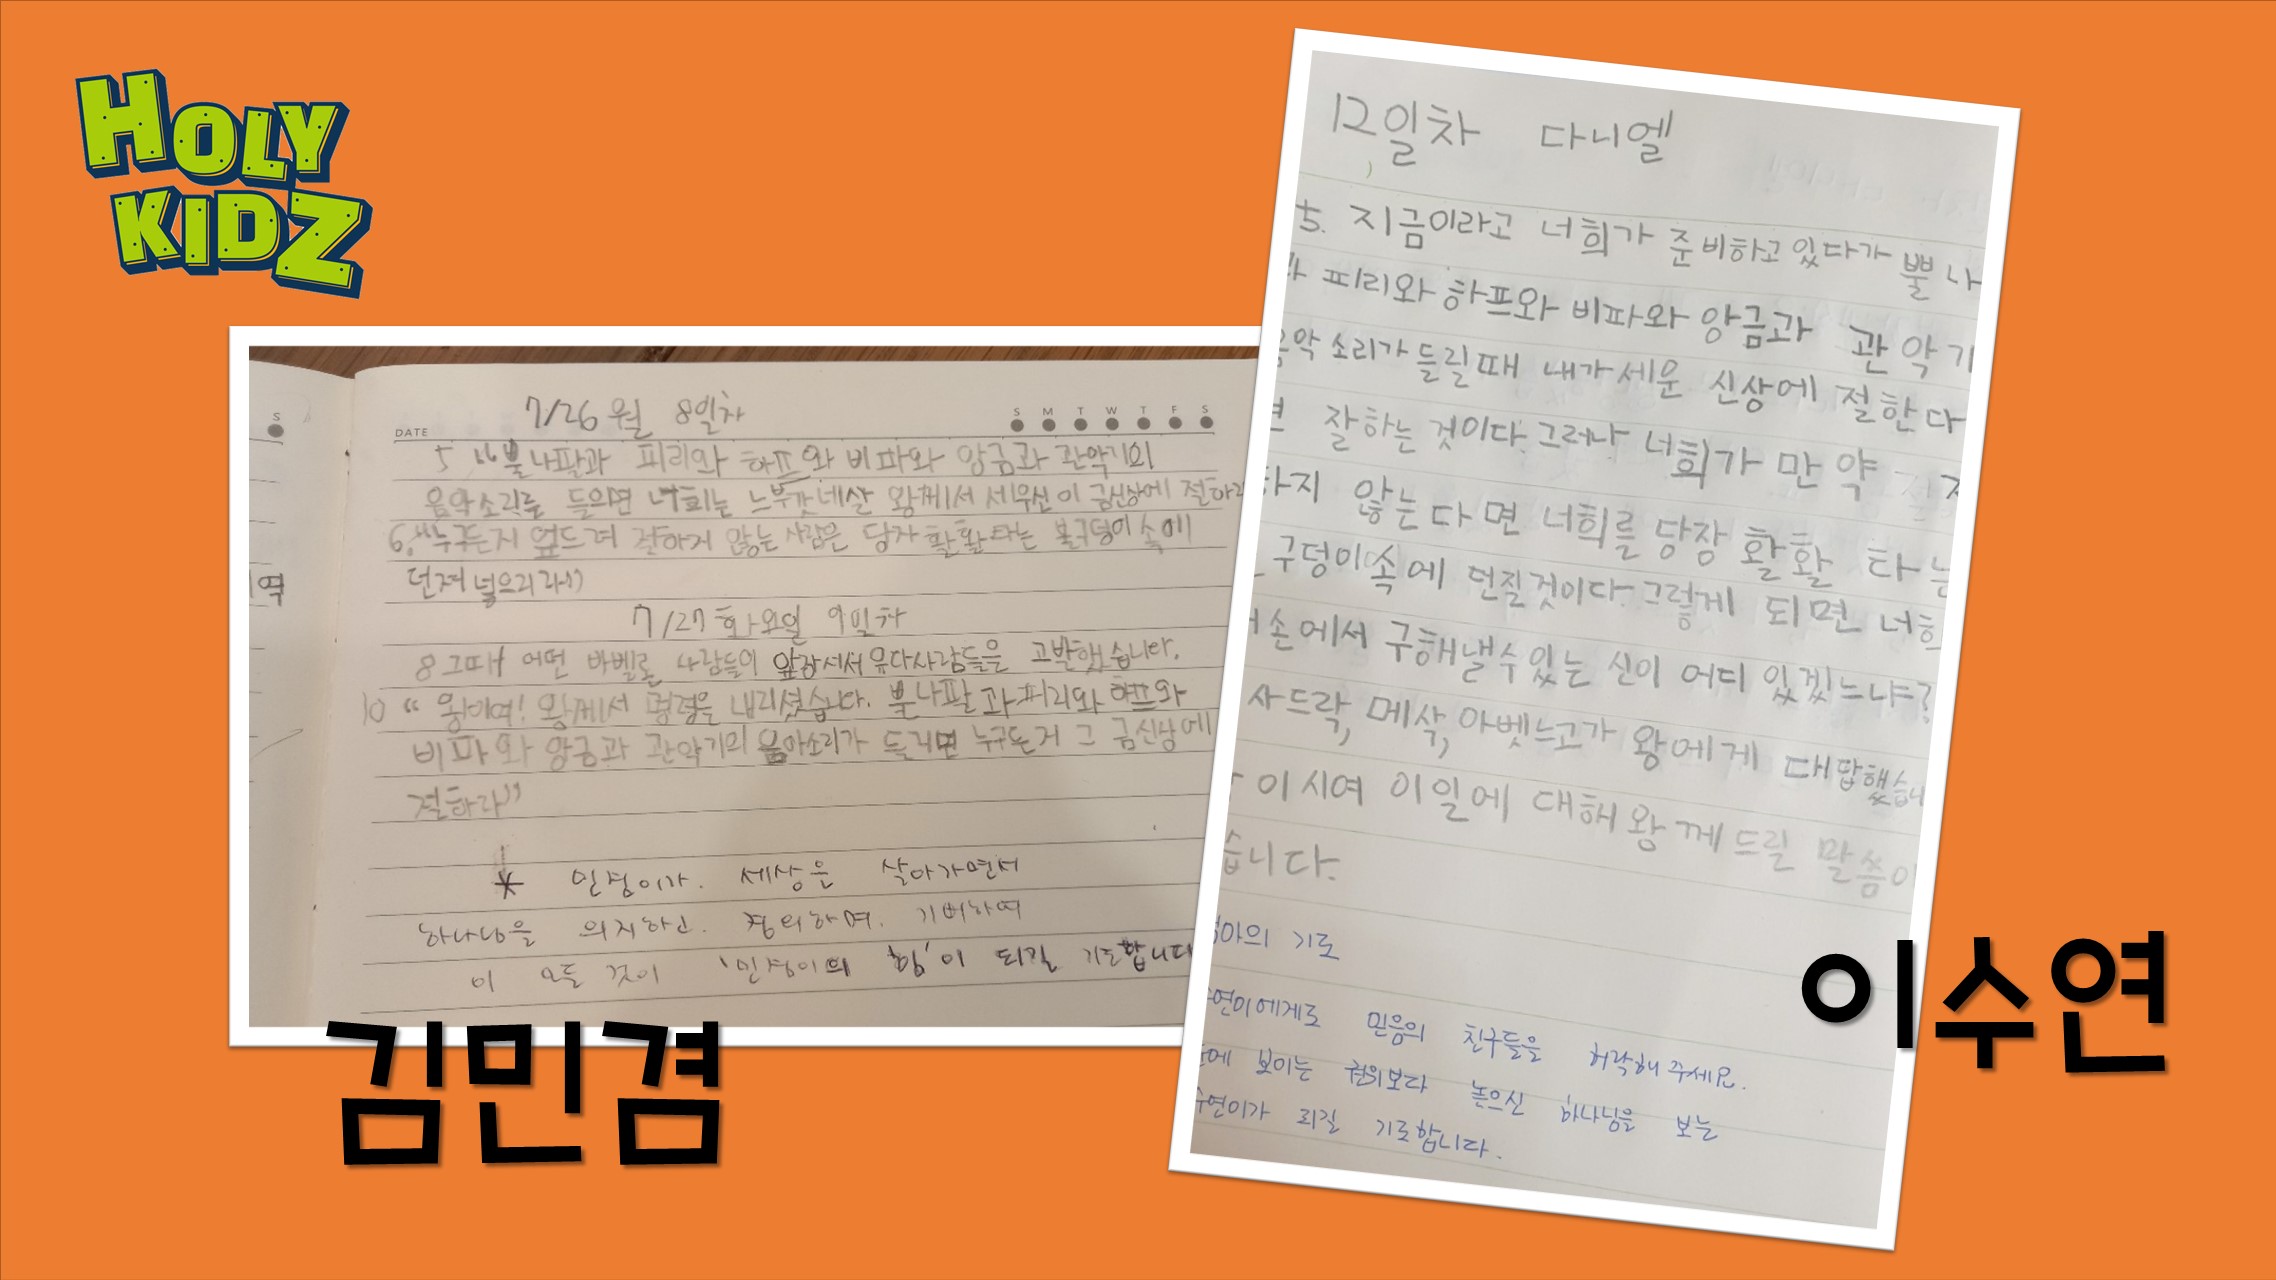 HOLY
KIDZ
S
역
7/26 월 8일차
DATE S M T W T F S
5 "뿔나팔과 피리와 하프와 비파와 앙금과 관악기의
음악소리를 들으면 너희는 느부갓네살 왕께서 세우신 이 금신상에 절하라
6. "누구든지 엎드려 절하지 않는 사람은 당장 활활타는 불구덩이 속에
던져 넣으리라"
7/27 화요일 9일차
8 그때 어떤 바벨론 사람들이 앞장서서 유다사람들을 고발했습니다.
10 " 왕이여! 왕께서 명령을 내리셨습니다. 뿔나팔과 피리와 하프와
비파와 앙금과 관악기의 음악소리가 들리면 누구든지 그 금신상에
절하라"
* 민겸이가. 세상을 살아가면서
하나님을 의지하고. 경외하며. 기뻐하며
이 모든 것이 '민겸이의 힘'이 되길 기도합니다
김민겸
12일차 다니엘
5. 지금이라고 너희가 준비하고 있다가 뿔 나
피리와 하프와 비파와 앙금과 관악기
음악 소리가 들릴때 내가 세운 신상에 절한다
면 잘하는 것이다. 그러나 너희가 만약 절
하지 않는다면 너희를 당장 활활 타는
구덩이속에 던질것이다. 그렇게 되면 너희
손에서 구해낼수있는 신이 어디 있겠느냐?
사드락, 메삭, 아벳느고가 왕에게 대답했습니
이시여 이일에 대해 왕께 드릴 말씀이
습니다.
엄마의 기도
수연이에게도 믿음의 친구들을 허락해 주세요.
눈에 보이는 권위보다 높으신 하나님을 보는
수연이가 되길 기도합니다.
이수연